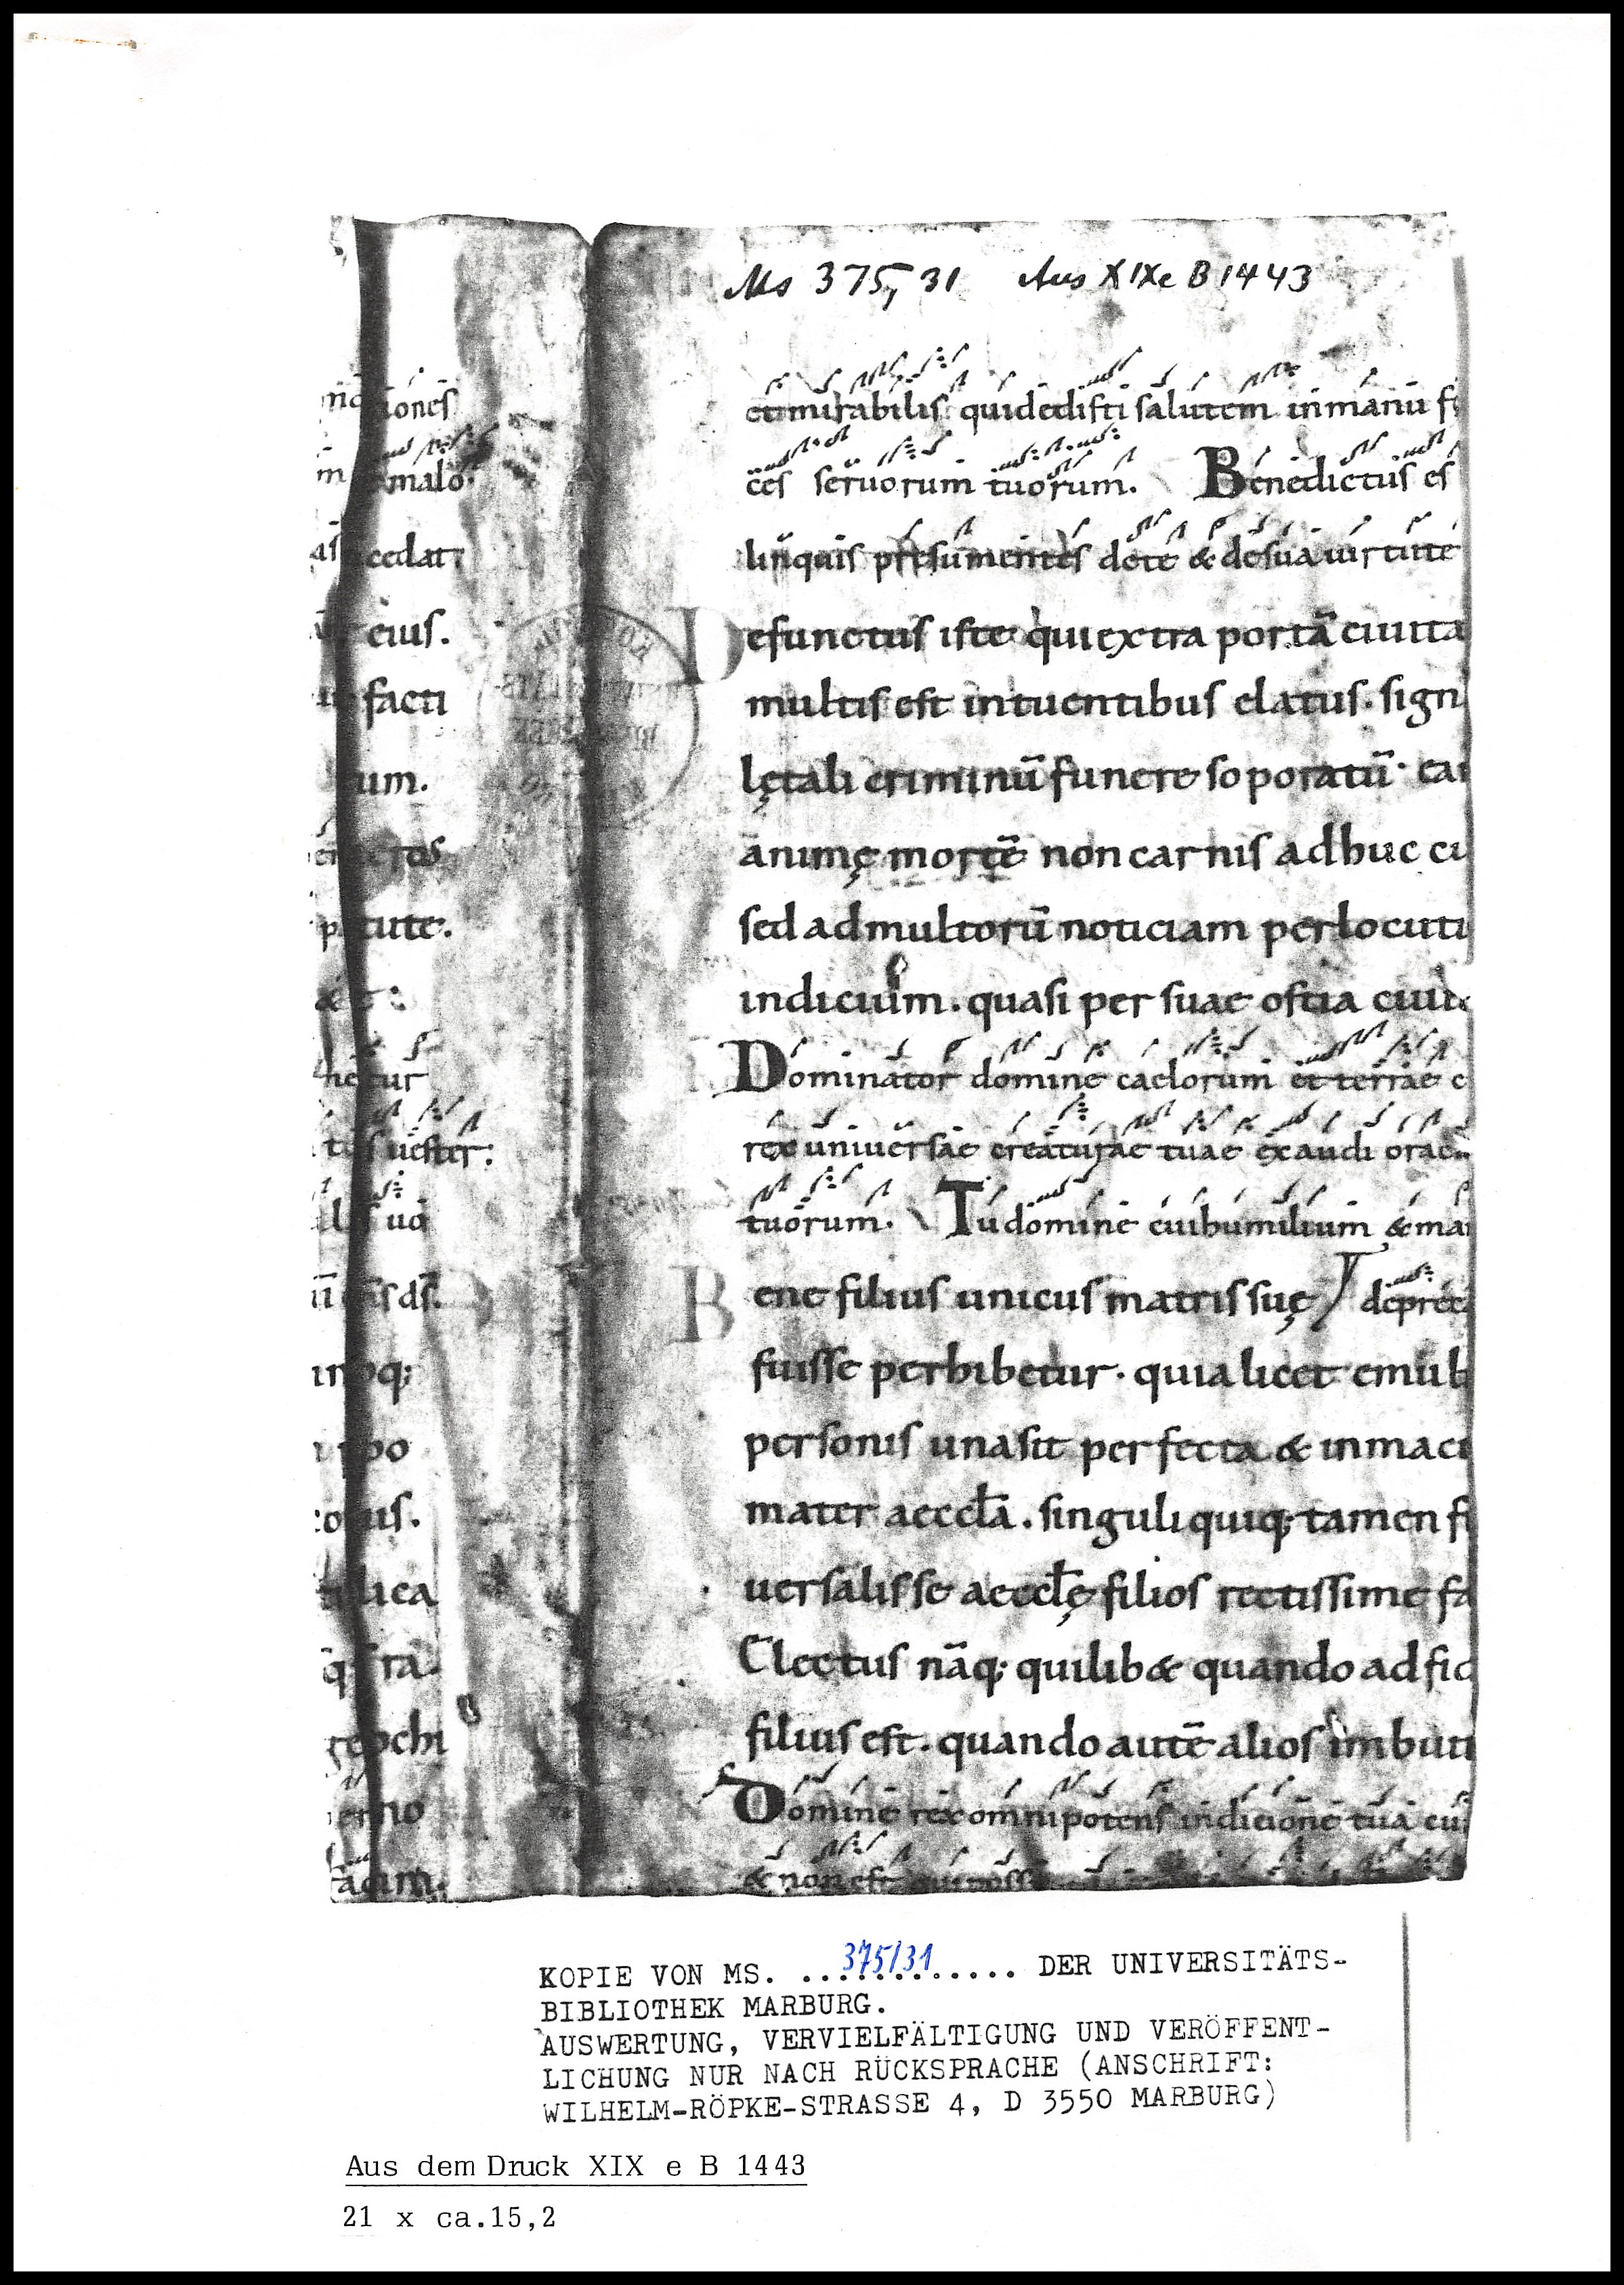 Ms 375, 31 Aus XIXe B 1443
iones
malo.
cedat
eius.
facti
um.
tute.
tur
uester:
ds.
po
us.
lica
chi
no
et mirabilis qui dedisti salutem in manu fi
ces seruorum tuorum. Benedictus es
linquis presumentes de te & de sua uirtute
Defunctus iste qui extra portā ciuita
multis est intuentibus elatus. sign
lętali criminū funere soporatū. ea
animę mortē non carnis adhuc
sed ad multorū noticiam per locuti
indicium. quasi per suae ostia ciuit
Dominator domine caelorum et terrae c
rex uniuersae creaturae tuae exaudi orac
tuorum. Tu domine cui humilium & ma
Bene filius unicus matris suę depreca
fuisse perhibetur. quia licet e mult
personis una sit perfecta & inmacu
mater aecclā. singuli quiq; tamen fi
uersalis se aecclę filios rectissime fa
Electus nāq; quilib& quando ad fid
filius est. quando autē alios imbuit
Domine rex omnipotens in dicione tua cu
& non est qui poss
KOPIE VON MS. ..375/31.. DER UNIVERSITÄTS-
BIBLIOTHEK MARBURG.
AUSWERTUNG, VERVIELFÄLTIGUNG UND VERÖFFENT-
LICHUNG NUR NACH RÜCKSPRACHE (ANSCHRIFT:
WILHELM-RÖPKE-STRASSE 4, D 3550 MARBURG)
Aus dem Druck XIX e B 1443
21 x ca.15,2